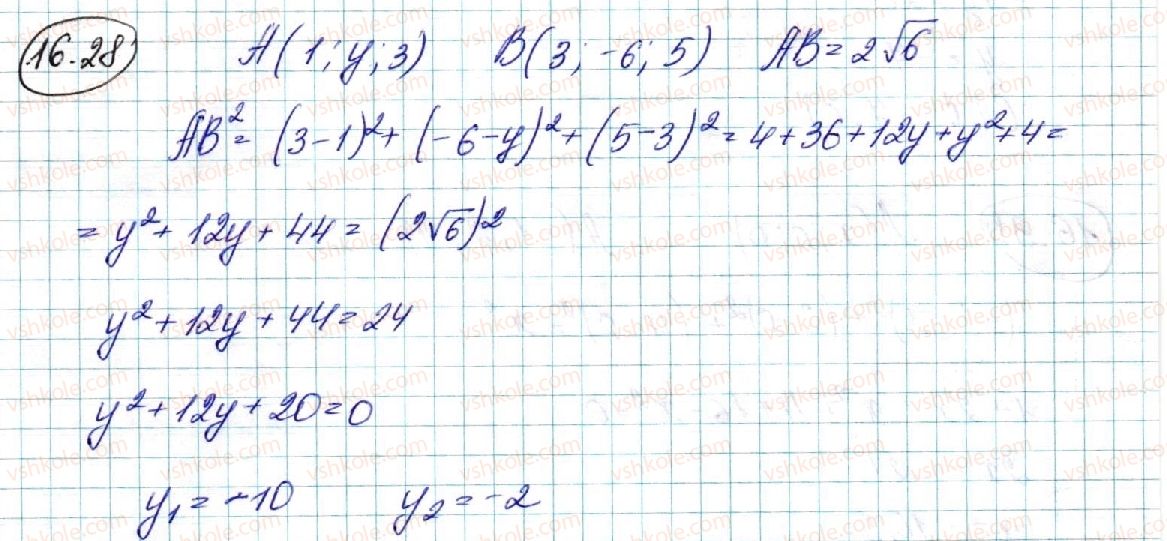 16.28 A(1; y; 3) B(3; -6; 5) AB = 2√6
AB² = (3-1)² + (-6-y)² + (5-3)² = 4 + 36 + 12y + y² + 4 =
= y² + 12y + 44 = (2√6)²
y² + 12y + 44 = 24
y² + 12y + 20 = 0
y₁ = -10 y₂ = -2
vshkole.com